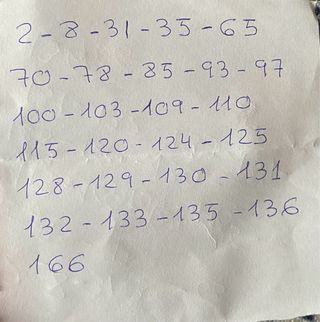 2-8-31-35-65
70-78-85-93-97
100-103-109-110
115-120-124-125
128-129-130-131
132-133-135-136
166